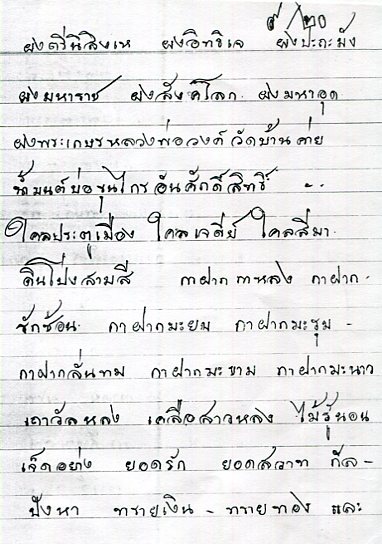 ๙/๒๐
ผงตรีนิสิงเห ผงอิทธิเจ ผงปะถะมัง
ผงมหาราช ผงสังคโลก ผงมหาอุด
ผงพระเกษรหลวงพ่อวงค์ วัดบ้านค่าย
น้ำมนต์บ่อขุนไกรอันศักดิ์สิทธิ์
ใคลประตูเมือง ใคลเจดีย์ ใคลสีมา
ดินโป่งสามสี กาฝากกาหลง กาฝาก
ซักซ้อน กาฝากมะยม กาฝากมะรุม -
กาฝากลั่นทม กาฝากมะขาม กาฝากมะนาว
เถาวัลหลง เครือสาวหลง ไม้รู้นอน
เจ็ดอย่าง ยอดรัก ยอดสวาท กัล-
ปังหา ทรายเงิน - ทรายทอง และ